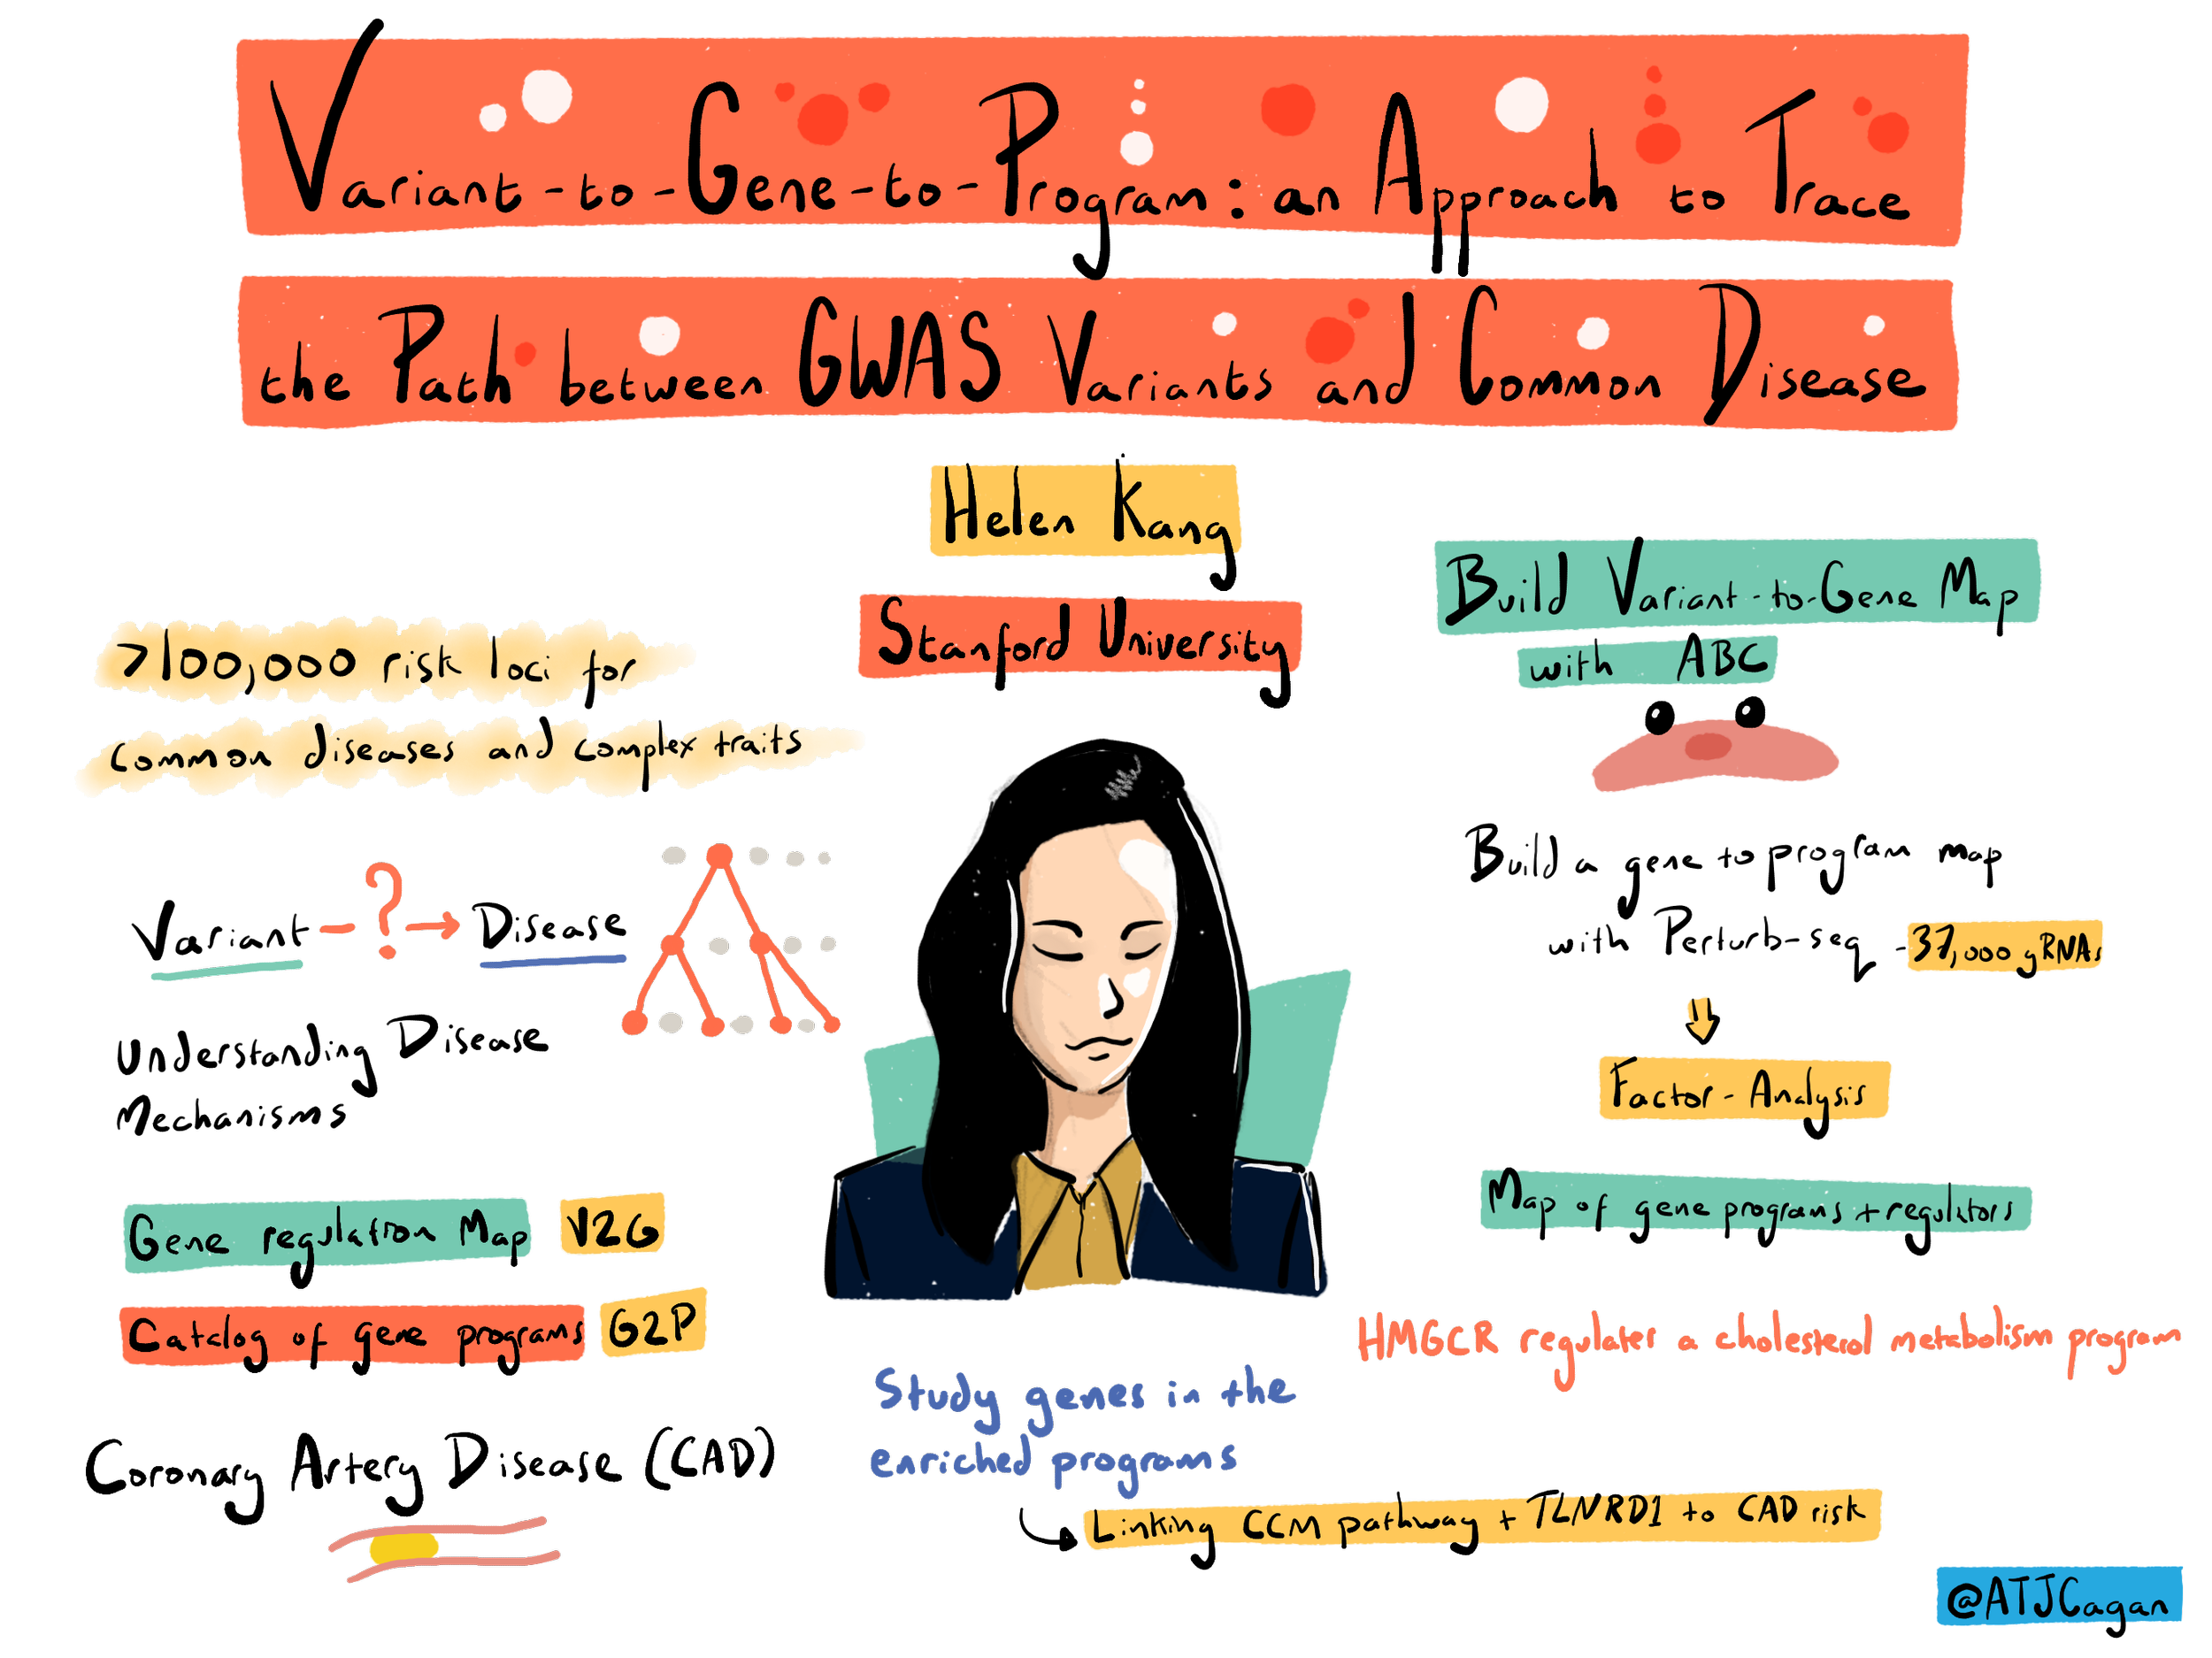 Variant-to-Gene-to-Program: an Approach to Trace
the Path between GWAS Variants and Common Disease
Helen Kang
Stanford University
>100,000 risk loci for
common diseases and complex traits
Variant - ? → Disease
Understanding Disease
Mechanisms
Gene regulation Map V2G
Catalog of gene programs G2P
Coronary Artery Disease (CAD)
Study genes in the
enriched programs
Linking CCM pathway + TLNRD1 to CAD risk
Build Variant-to-Gene Map
with ABC
Build a gene to program map
with Perturb-seq - 37,000 gRNAs
Factor-Analysis
Map of gene programs + regulators
HMGCR regulates a cholesterol metabolism program
@ATJCagan